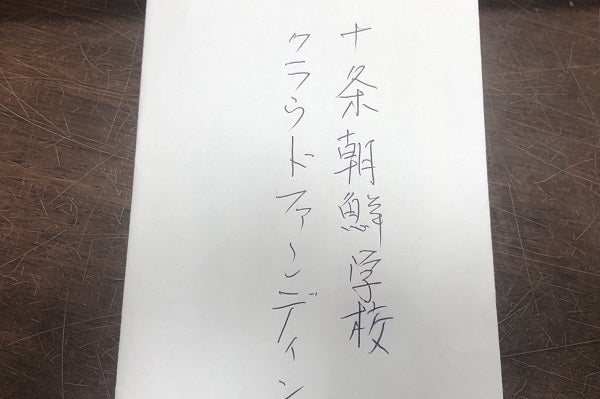 十条朝鮮学校
クラウドファンディン